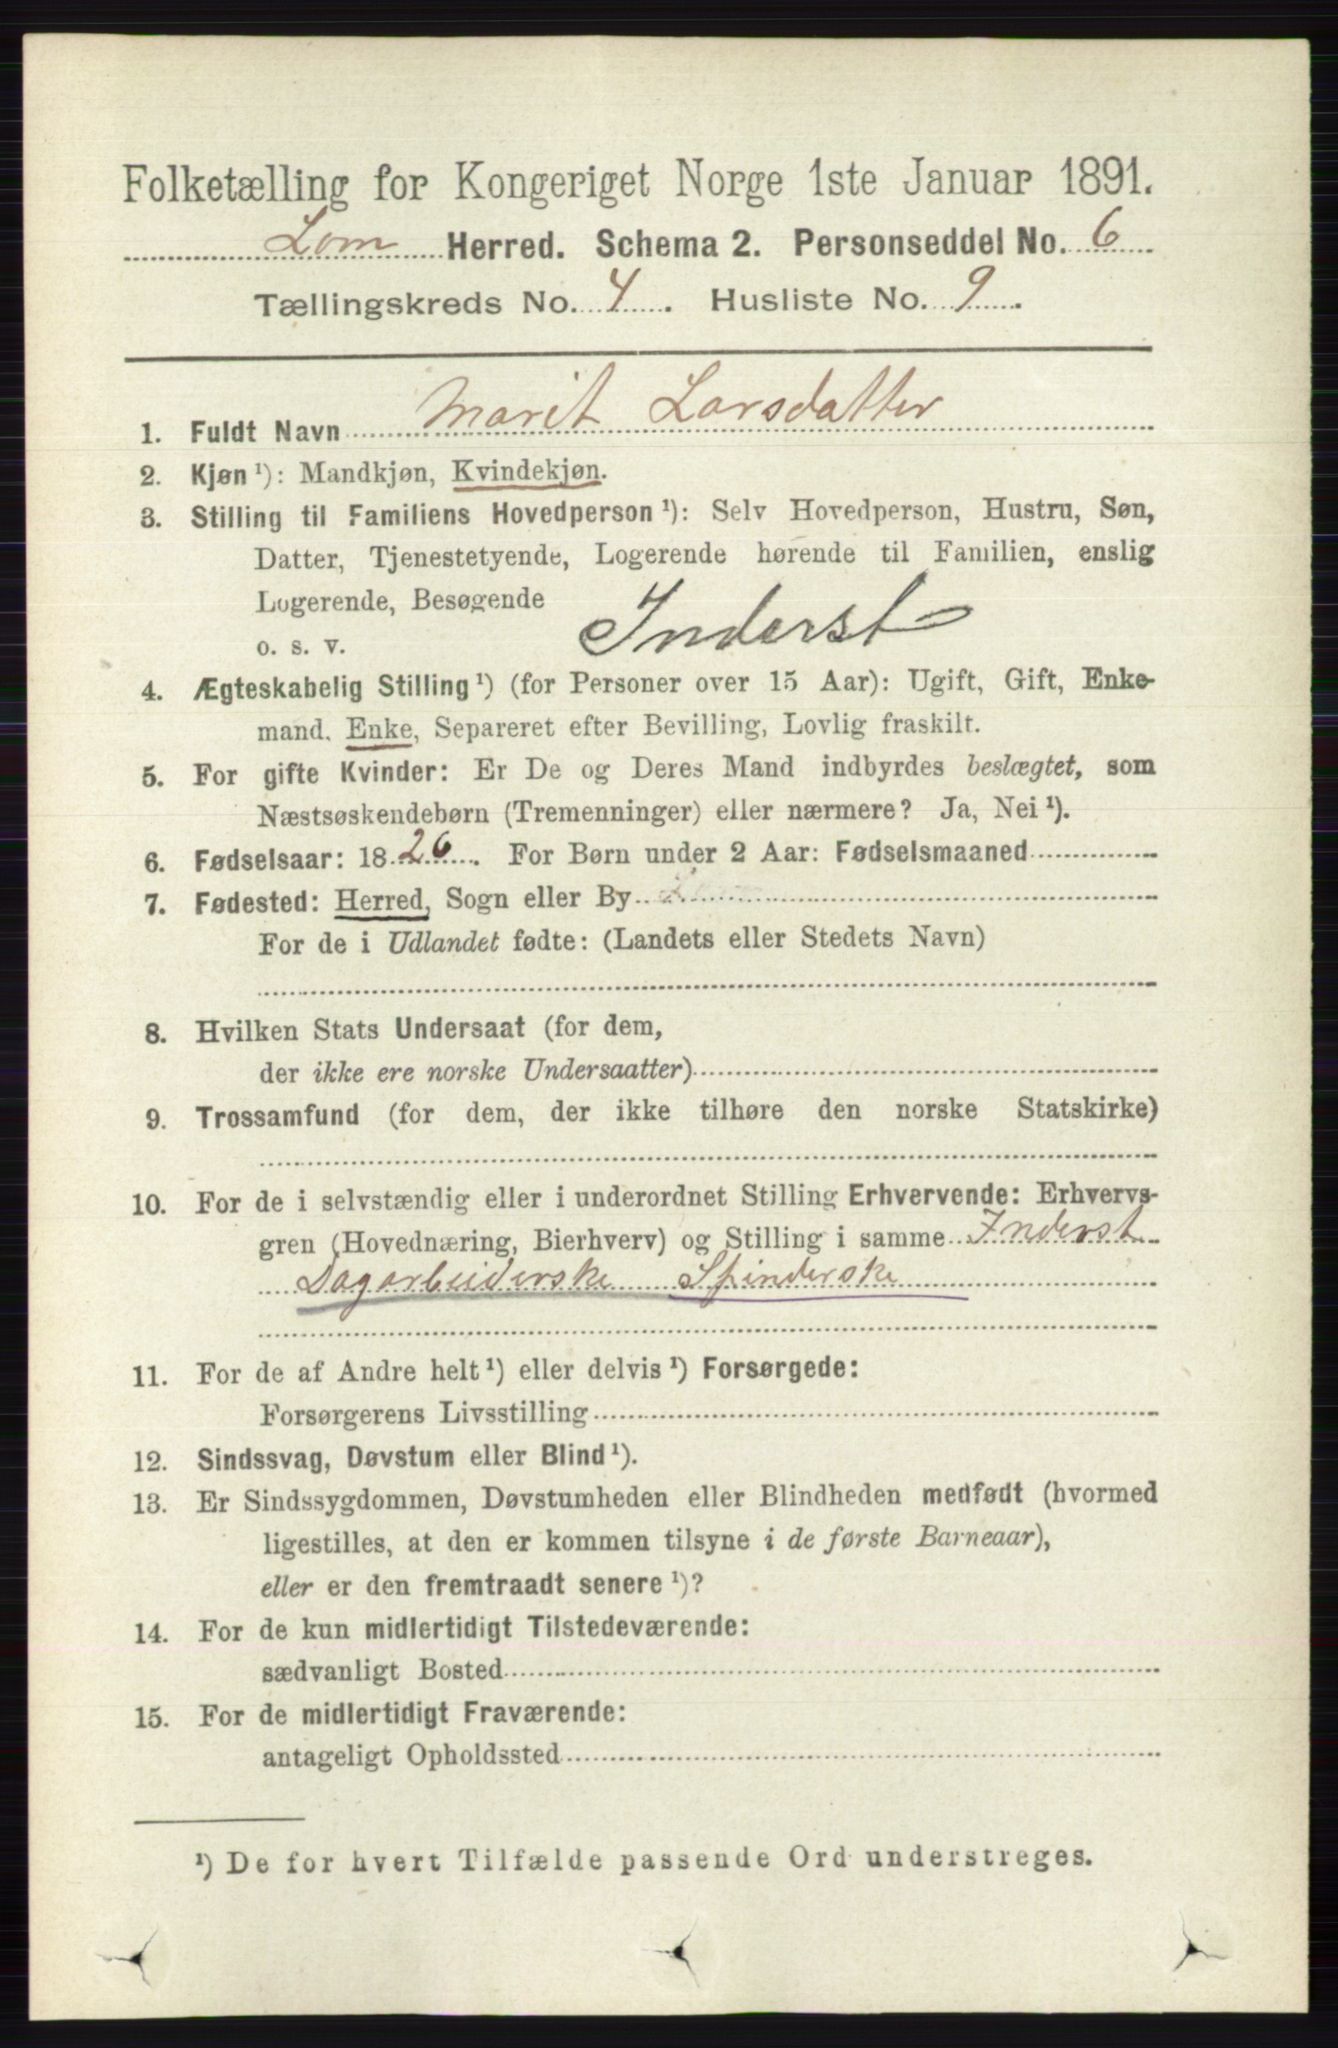 Folketælling for Kongeriget Norge 1ste Januar 1891.
Lom Herred. Schema 2. Personseddel No. 6
Tællingskreds No. 4. Husliste No. 9.
1. Fuldt Navn Marit Larsdatter
2. Kjøn¹): Mandkjøn, Kvindekjøn.
3. Stilling til Familiens Hovedperson¹): Selv Hovedperson, Hustru, Søn,
Datter, Tjenestetyende, Logerende hørende til Familien, enslig
Logerende, Besøgende
o. s. v. Inderst
4. Ægteskabelig Stilling¹) (for Personer over 15 Aar): Ugift, Gift, Enke-
mand, Enke, Separeret efter Bevilling, Lovlig fraskilt.
5. For gifte Kvinder: Er De og Deres Mand indbyrdes beslægtet, som
Næstsøskendebørn (Tremenninger) eller nærmere? Ja, Nei¹).
6. Fødselsaar: 1826. For Børn under 2 Aar: Fødselsmaaned
7. Fødested: Herred, Sogn eller By Lom
For de i Udlandet fødte: (Landets eller Stedets Navn)
8. Hvilken Stats Undersaat (for dem,
der ikke ere norske Undersaatter)
9. Trossamfund (for dem, der ikke tilhøre den norske Statskirke)
10. For de i selvstændig eller i underordnet Stilling Erhvervende: Erhvervs-
gren (Hovednæring, Bierhverv) og Stilling i samme Inderst
Dagarbeiderske Spinderske
11. For de af Andre helt¹) eller delvis¹) Forsørgede:
Forsørgerens Livsstilling
12. Sindssvag, Døvstum eller Blind¹).
13. Er Sindssygdommen, Døvstumheden eller Blindheden medfødt (hvormed
ligestilles, at den er kommen tilsyne i de første Barneaar),
eller er den fremtraadt senere¹)?
14. For de kun midlertidigt Tilstedeværende:
sædvanligt Bosted
15. For de midlertidigt Fraværende:
antageligt Opholdssted
¹) De for hvert Tilfælde passende Ord understreges.